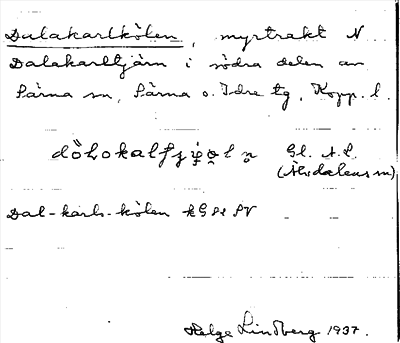 Dalakarlkölen, myrtrakt N
Dalakarltjärn i södra delen av
Särna sn, Särna o. Idre tg, Kopp. l.
Gl. A.L.
(Älvdalens sn)
Dal-karls-kölen
Helge Lindberg 1937.